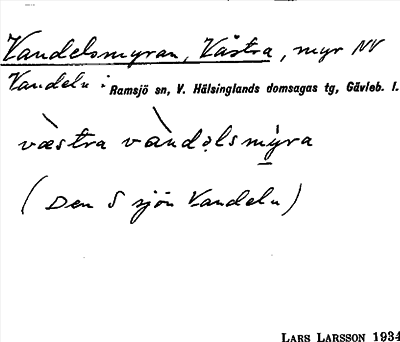 Vandelsmyran, Västra, myr NV
Vandeln i Ramsjö sn, V. Hälsinglands domsagas tg, Gävleb. l.
vœ̀stra vànd̥lsmy̌ra
(Den S sjön Vandeln)
LARS LARSSON 1934